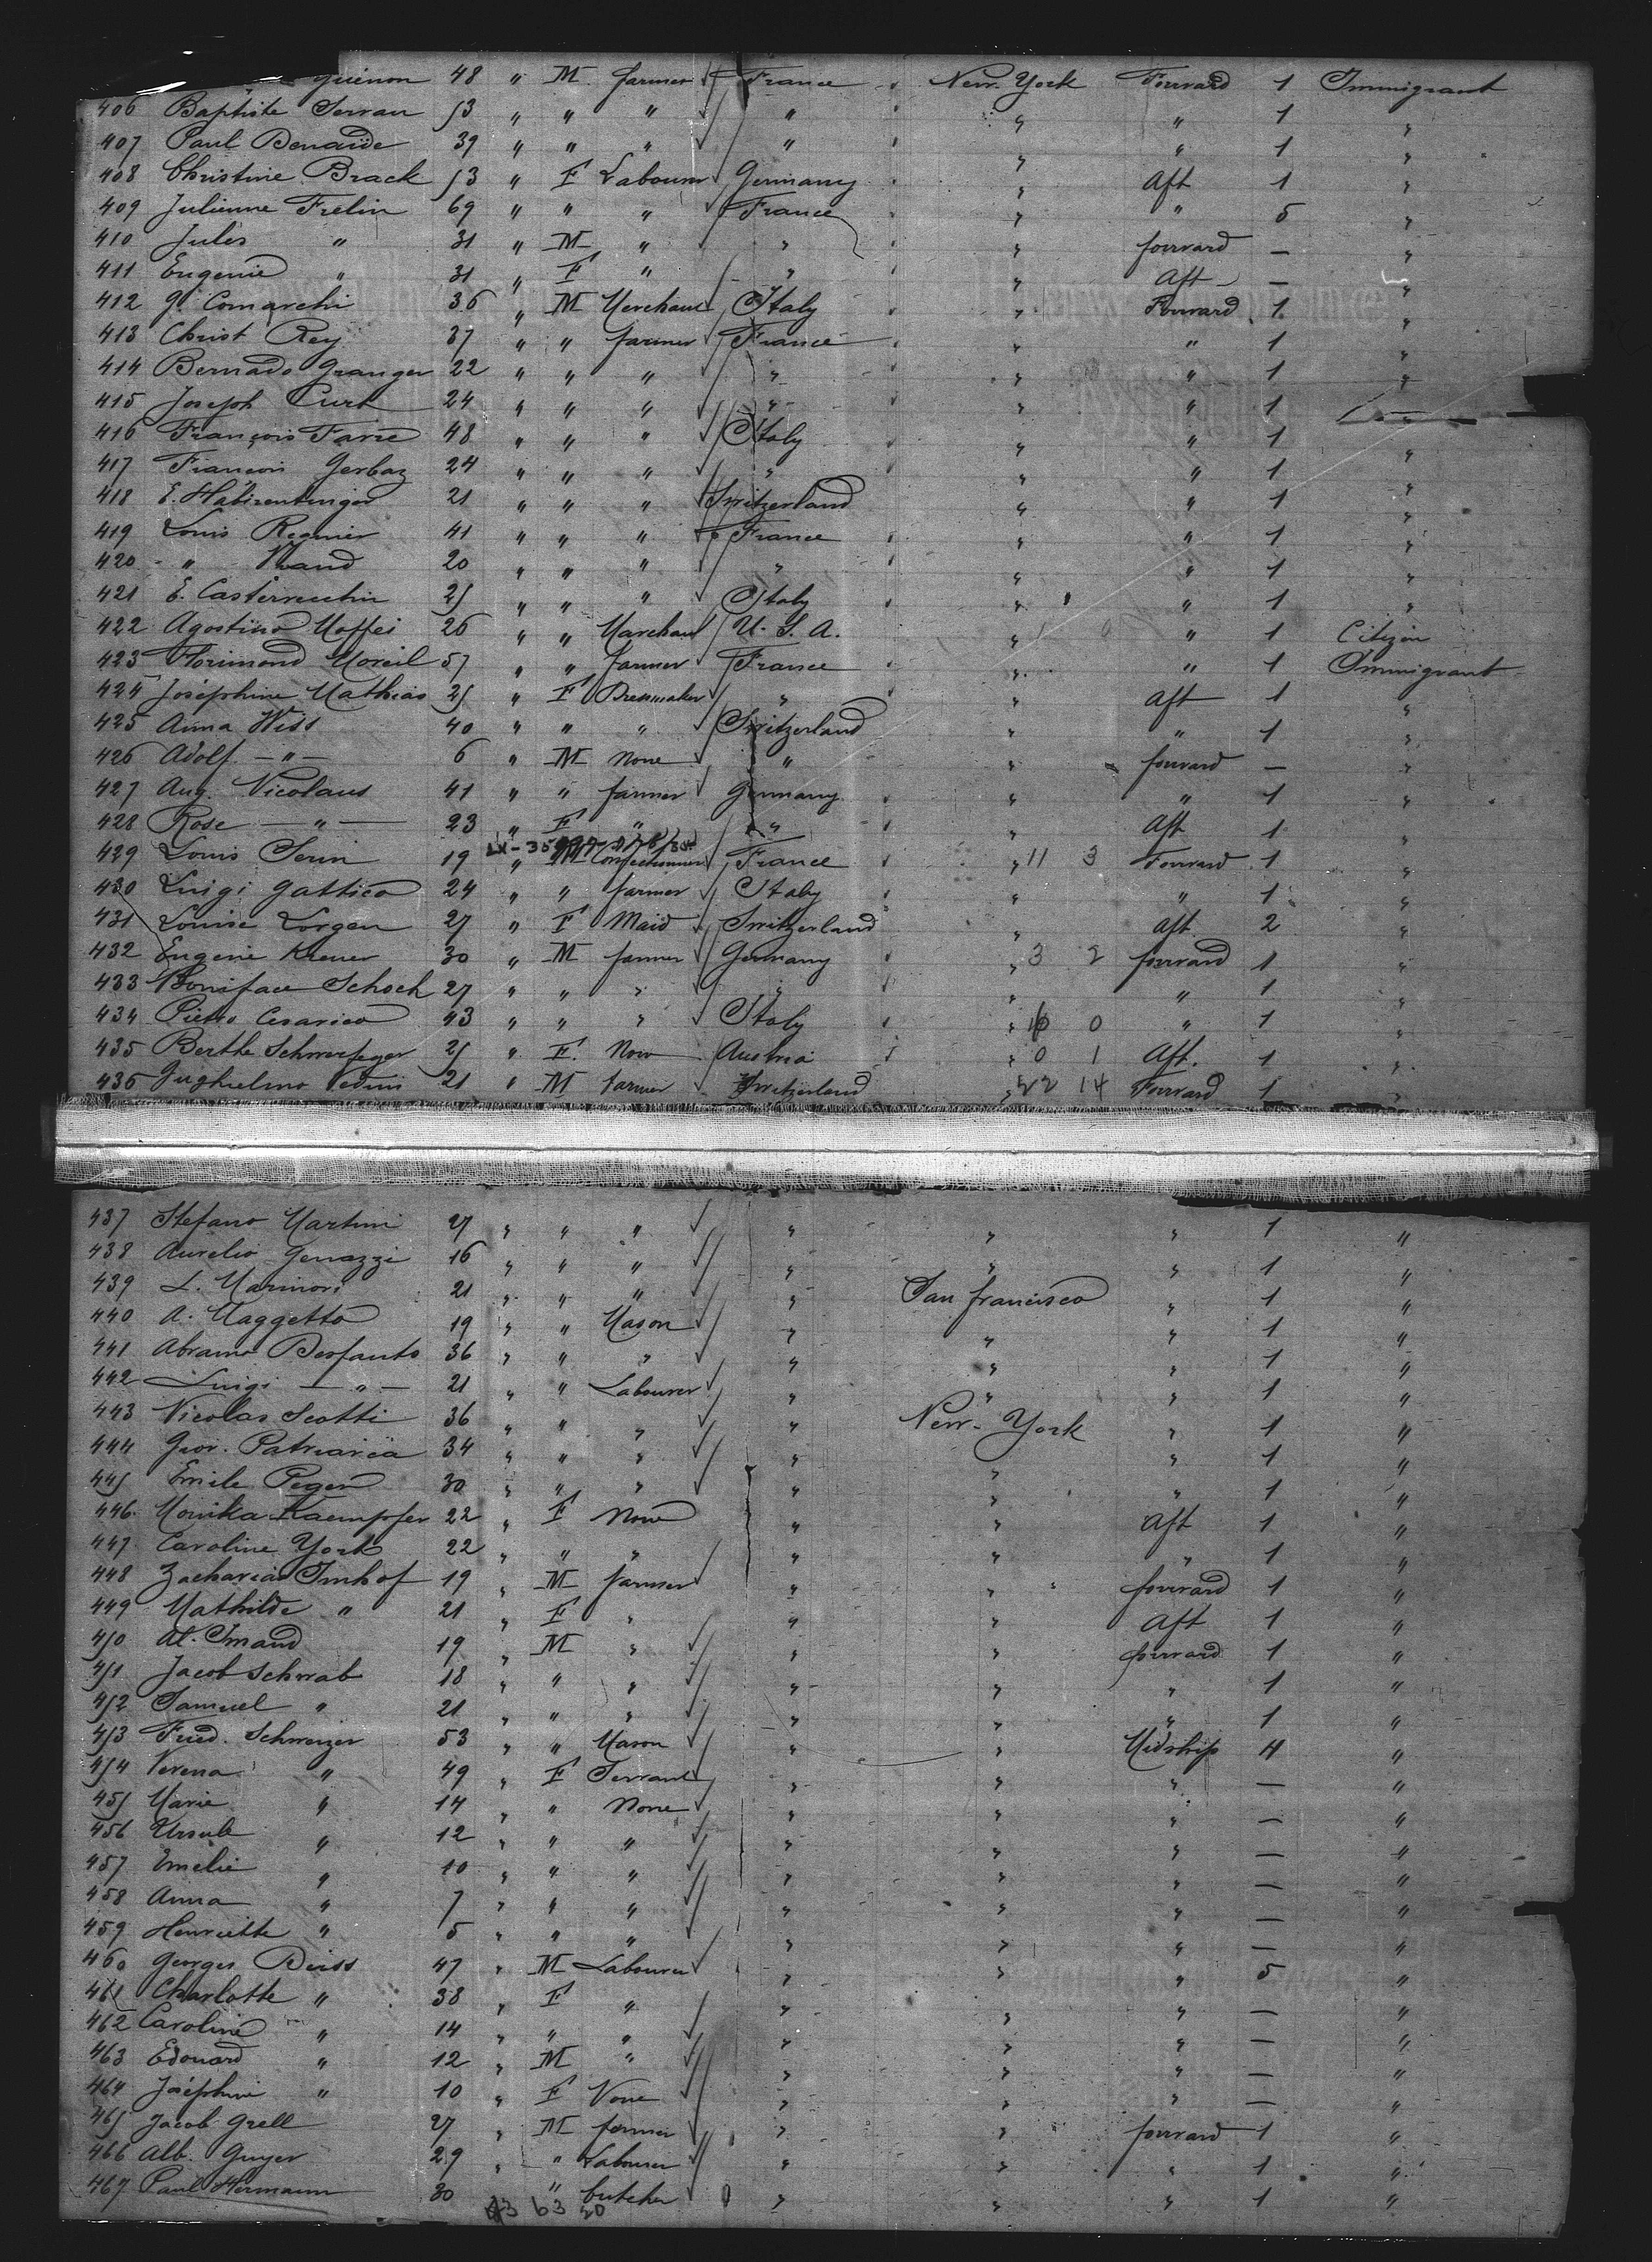 Guenon 48 " M farmer France New-York Forward 1 Immigrant
406 Baptiste Serran 53 " " " " " " 1 "
407 Paul Benaide 39 " " " " " " 1 "
408 Christine Brack 53 " F Labourer Germany " Aft 1 "
409 Julienne Frelin 69 " " " France " " 5 "
410 Jules " 31 " M " " " forward — "
411 Eugenie " 31 " F " " " Aft — "
412 G. Comarchi 36 " M Merchant Italy " Forward 1 "
413 Christ Rey 37 " " farmer France " " 1 "
414 Bernado Granger 22 " " " " " " 1 "
415 Joseph Curt 24 " " " " " " 1 "
416 François Farre 48 " " " Italy " " 1 "
417 François Gerbaz 24 " " " " " " 1 "
418 E. 21 " " " Switzerland " " 1 "
419 Louis Regnier 41 " " " France " " 1 "
420 " 20 " " " " " " 1 "
421 E. 25 " " " Italy " " 1 "
422 Agostino Maffei 26 " " Marchant U.S.A. " " 1 Citizen
423 Florimond Moreil 57 " " farmer France " " 1 Immigrant
424 Joséphine Mathias 25 " F Dressmaker " " Aft 1 "
425 Anna Wiss 40 " " " Switzerland " " 1 "
426 Adolf — " — 6 " M None " " forward — "
427 Aug. Nicolaus 41 " " farmer Germany " " 1 "
428 Rose — " — 23 " F " " " Aft 1 "
429 Louis Serin 19 " M Confectionner France " 11 3 Forward 1 "
430 Luigi Gattico 24 " " farmer Italy " " 1 "
431 Louise Lorgen 27 " F Maid Switzerland " Aft. 2 "
432 Eugene Krener 30 " M farmer Germany " 3 2 forward 1 "
433 Boniface Schoch 27 " " " " " " 1 "
434 Pietro Cesarico 43 " " " Italy " 0 " 1 "
435 Berthe Schwerfeger 25 " F. None Austria " 0 1 Aft. 1 "
436 Guglielmo Vedini 21 " M farmer Switzerland " 22 14 Forward 1 "
437 Stefano Martini 27 " " " " " " 1 "
438 Aurelio Genazzi 16 " " " " " " 1 "
439 L. Marinoni 21 " " " " San francisco " 1 "
440 A. Maggetto 19 " " Mason " " " 1 "
441 Abramo Berfants 36 " " " " " " 1 "
442 Luigi — " — 21 " " Labourer " " " 1 "
443 Nicolas Scotti 36 " " " " New-York " 1 "
444 Giov. Patriarca 34 " " " " " " 1 "
445 Emile Peger 30 " " " " " " 1 "
446. Monika Kaempfer 22 " F None " " Aft 1 "
447 Caroline York 22 " " " " " " 1 "
448 Zacharias Imhof 19 " M farmer " " forward 1 "
449 Mathilde " 21 " F " " " Aft 1 "
450 Al. Imand 19 " M " " " forward 1 "
451 Jacob Schwab 18 " " " " " " 1 "
452 Samuel " 21 " " " " " " 1 "
453 Fried. Schweizer 53 " " Mason " " Midship 4 "
454 Verena " 49 " F Servant " " " — "
455 Marie " 14 " " None " " " — "
456 Ursule " 12 " " " " " " — "
457 Emelie " 10 " " " " " " — "
458 Anna " 7 " " " " " " — "
459 Henriette " 5 " " " " " " — "
460 Georges Beiss 47 " M Labourer " " " 5 "
461 Charlotte " 38 " F " " " " — "
462 Caroline " 14 " " " " " " — "
463 Edouard " 12 " M " " " " — "
464 Joséphine " 10 " F None " " " — "
465 Jacob Grell 27 " M farmer " " forward 1 "
466 Alb. Guyer 29 " " Labourer " " " 1 "
467 Paul Hermann 30 " butcher " " " 1 "
43 63 20